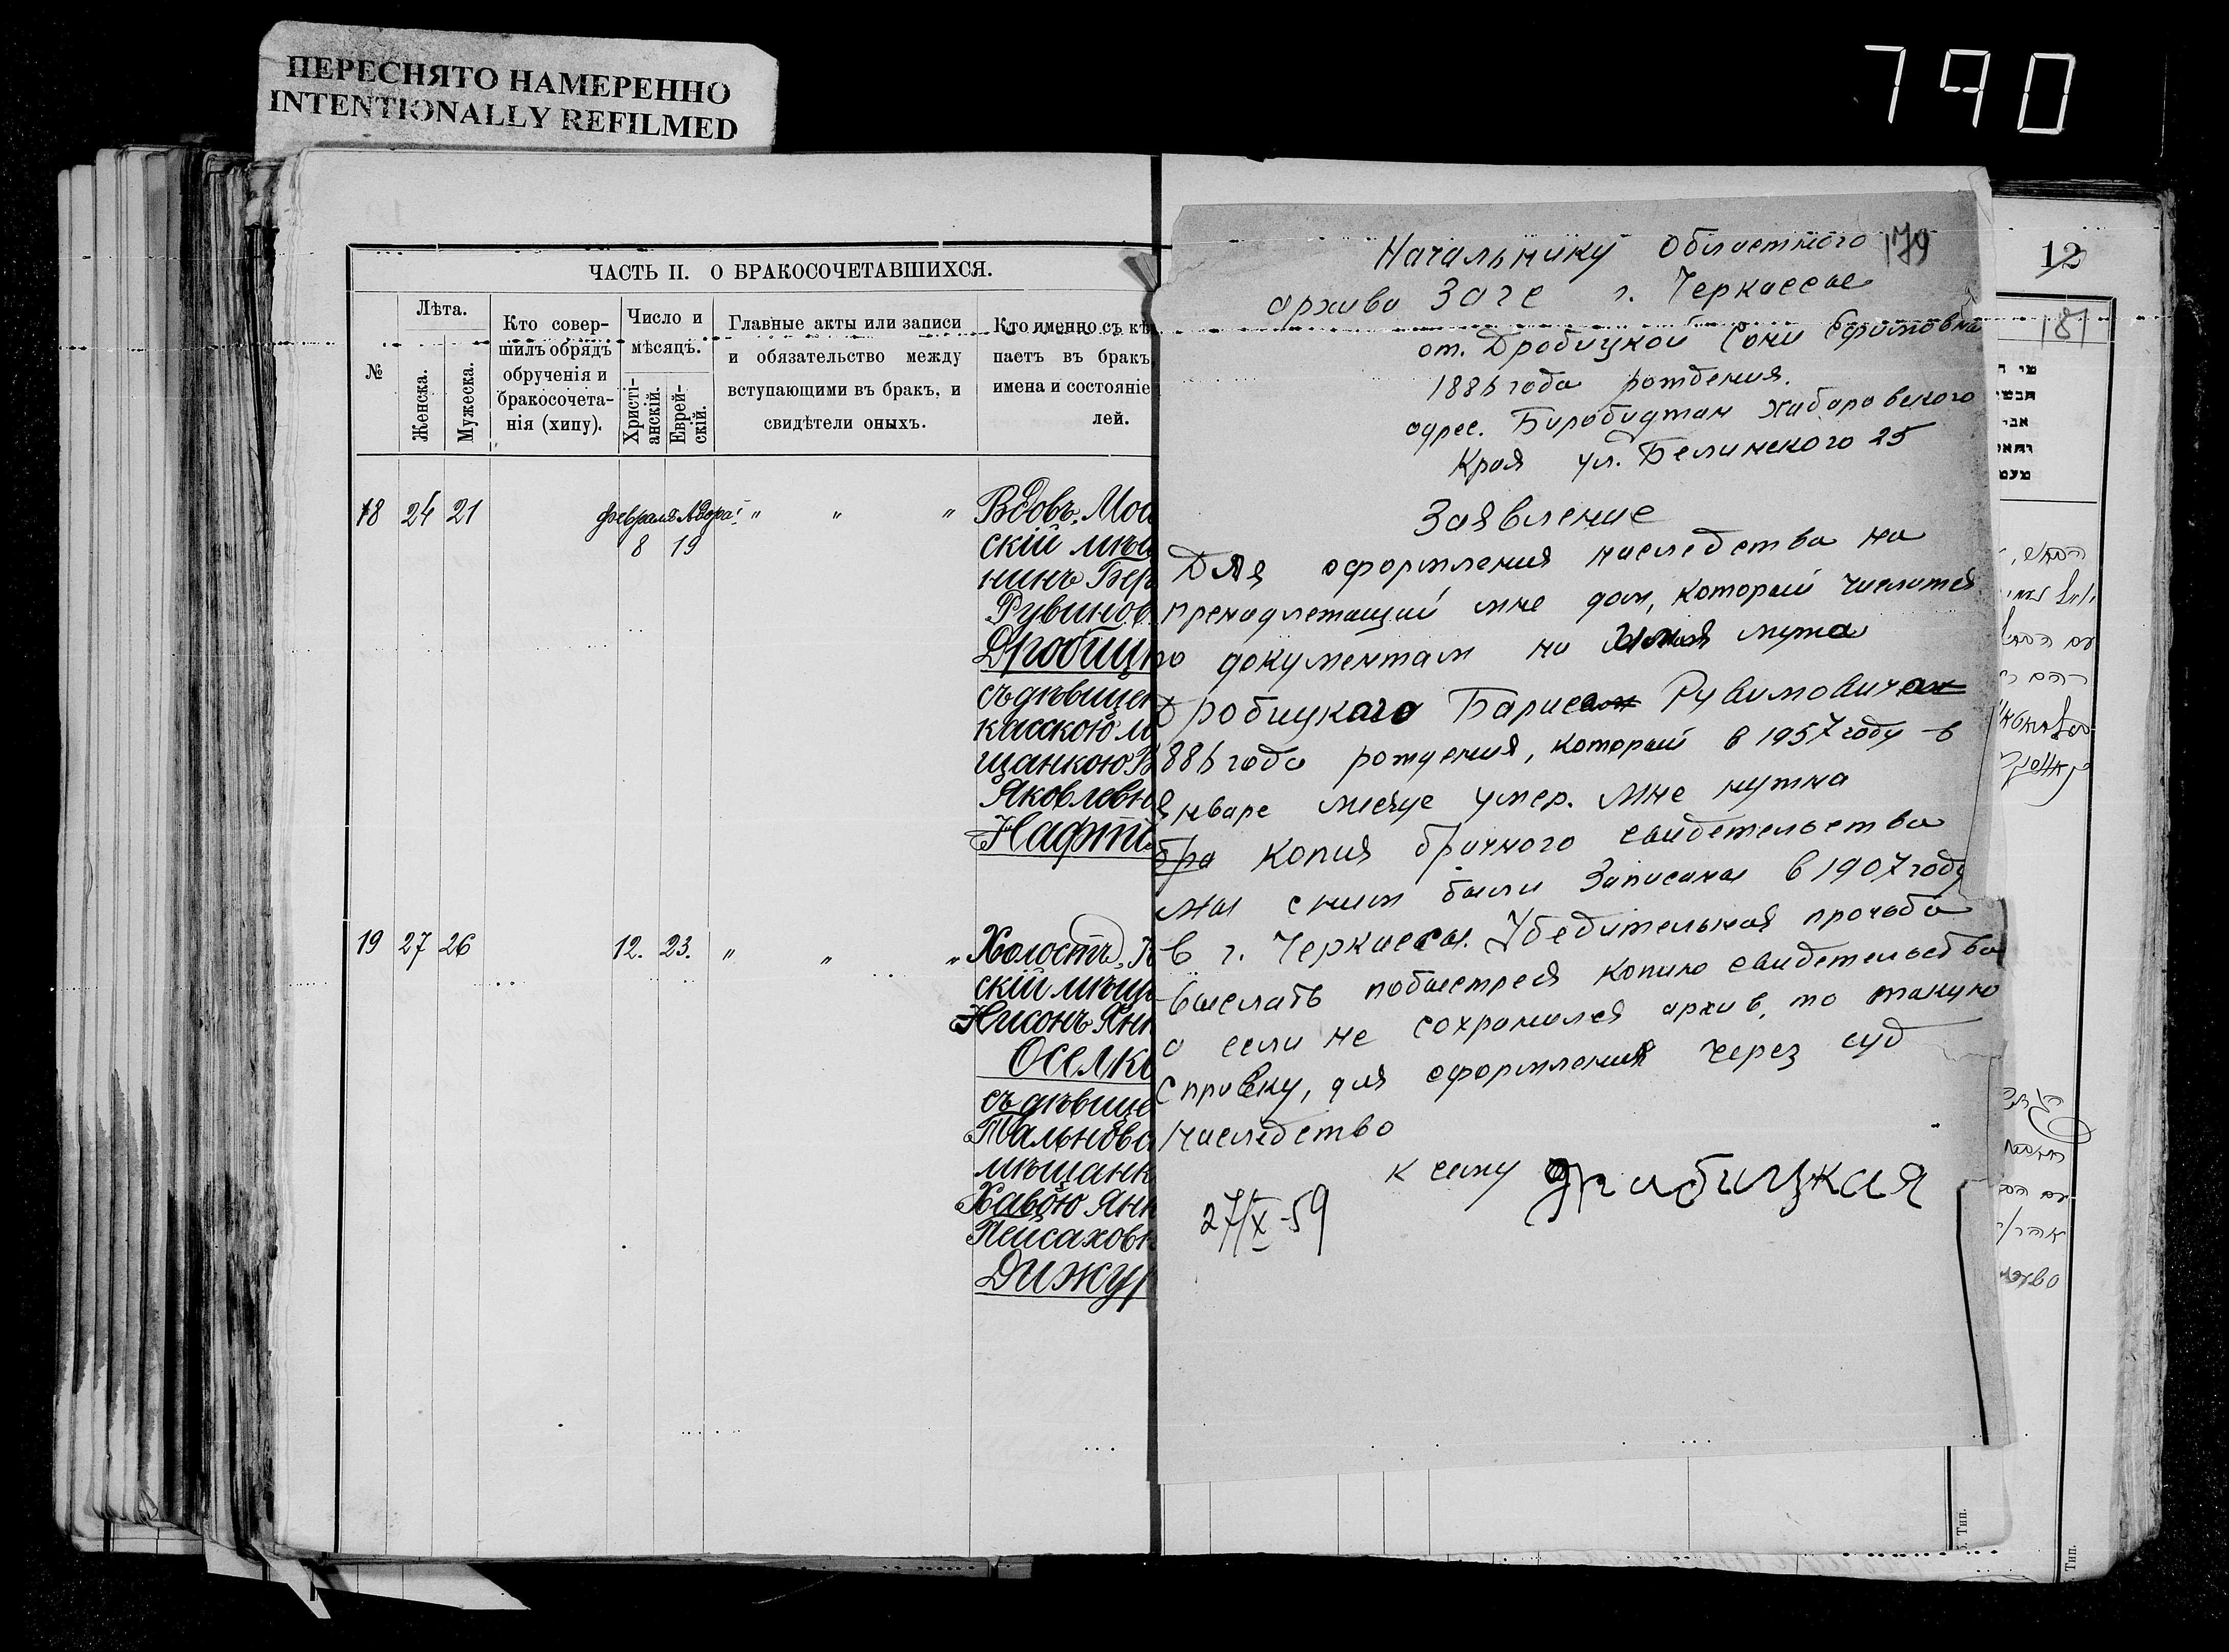 ПЕРЕСНЯТО НАМЕРЕННО
INTENTIONALLY REFILMED
790
ЧАСТЬ II. О БРАКОСОЧЕТАВШИХСЯ.
№
Лѣта.
Женска.
Мужеска.
Кто совер-
шилъ обрядъ
обрученія и
бракосочета-
нія (хипу).
Число и
мѣсяцъ.
Христі-
анскій.
Еврей-
скій.
Главные акты или записи
и обязательство между
вступающими въ бракъ, и
свидѣтели оныхъ.
Кто именно съ кѣ
паетъ въ бракъ
имена и состояніе
лей.
18 24 21 февраля Адора 1 " " "
8 19
Вдовъ, Мос
скій мѣщ
нинъ Бер
Рувинов
Дробицк
съ дѣвицей
касскою м
щанкою В
Яковлевн
Нафта
19 27 26 12. 23. " " "
Холостъ, К
скій мѣщ
Нисонъ Янк
Оселко
съ дѣвице
Тальновс
мѣщанк
Хавою Янк
Пейсаховн
Дижур
Начальнику Областного 179
архива Загс г. Черкассы
от. Дробицкой Сони Ефимовна
1886 года рождения.
адрес. Биробиджан Хабаровского
Края ул. Белинского 25
Заявление
Для оформления наследства на
пренадлежащий мне дом, который числится
по документам на имя мужа
Дробицкого Бориса Рувимовича
1886 года рождения, который в 1957 году в
январе месяце умер. Мне нужна
бра копия брачного свидетельства
мы с ним были записаны в 1907 году
в г. Черкассы. Убедительная прочьба
выслать побыстрея копию свидетельства
а если не сохранился архив, то такую
справку, для оформления через суд
наследство
к сему Драбицкая
27/X-59
12
181
מי ה
אבי
Тип.
Тип.